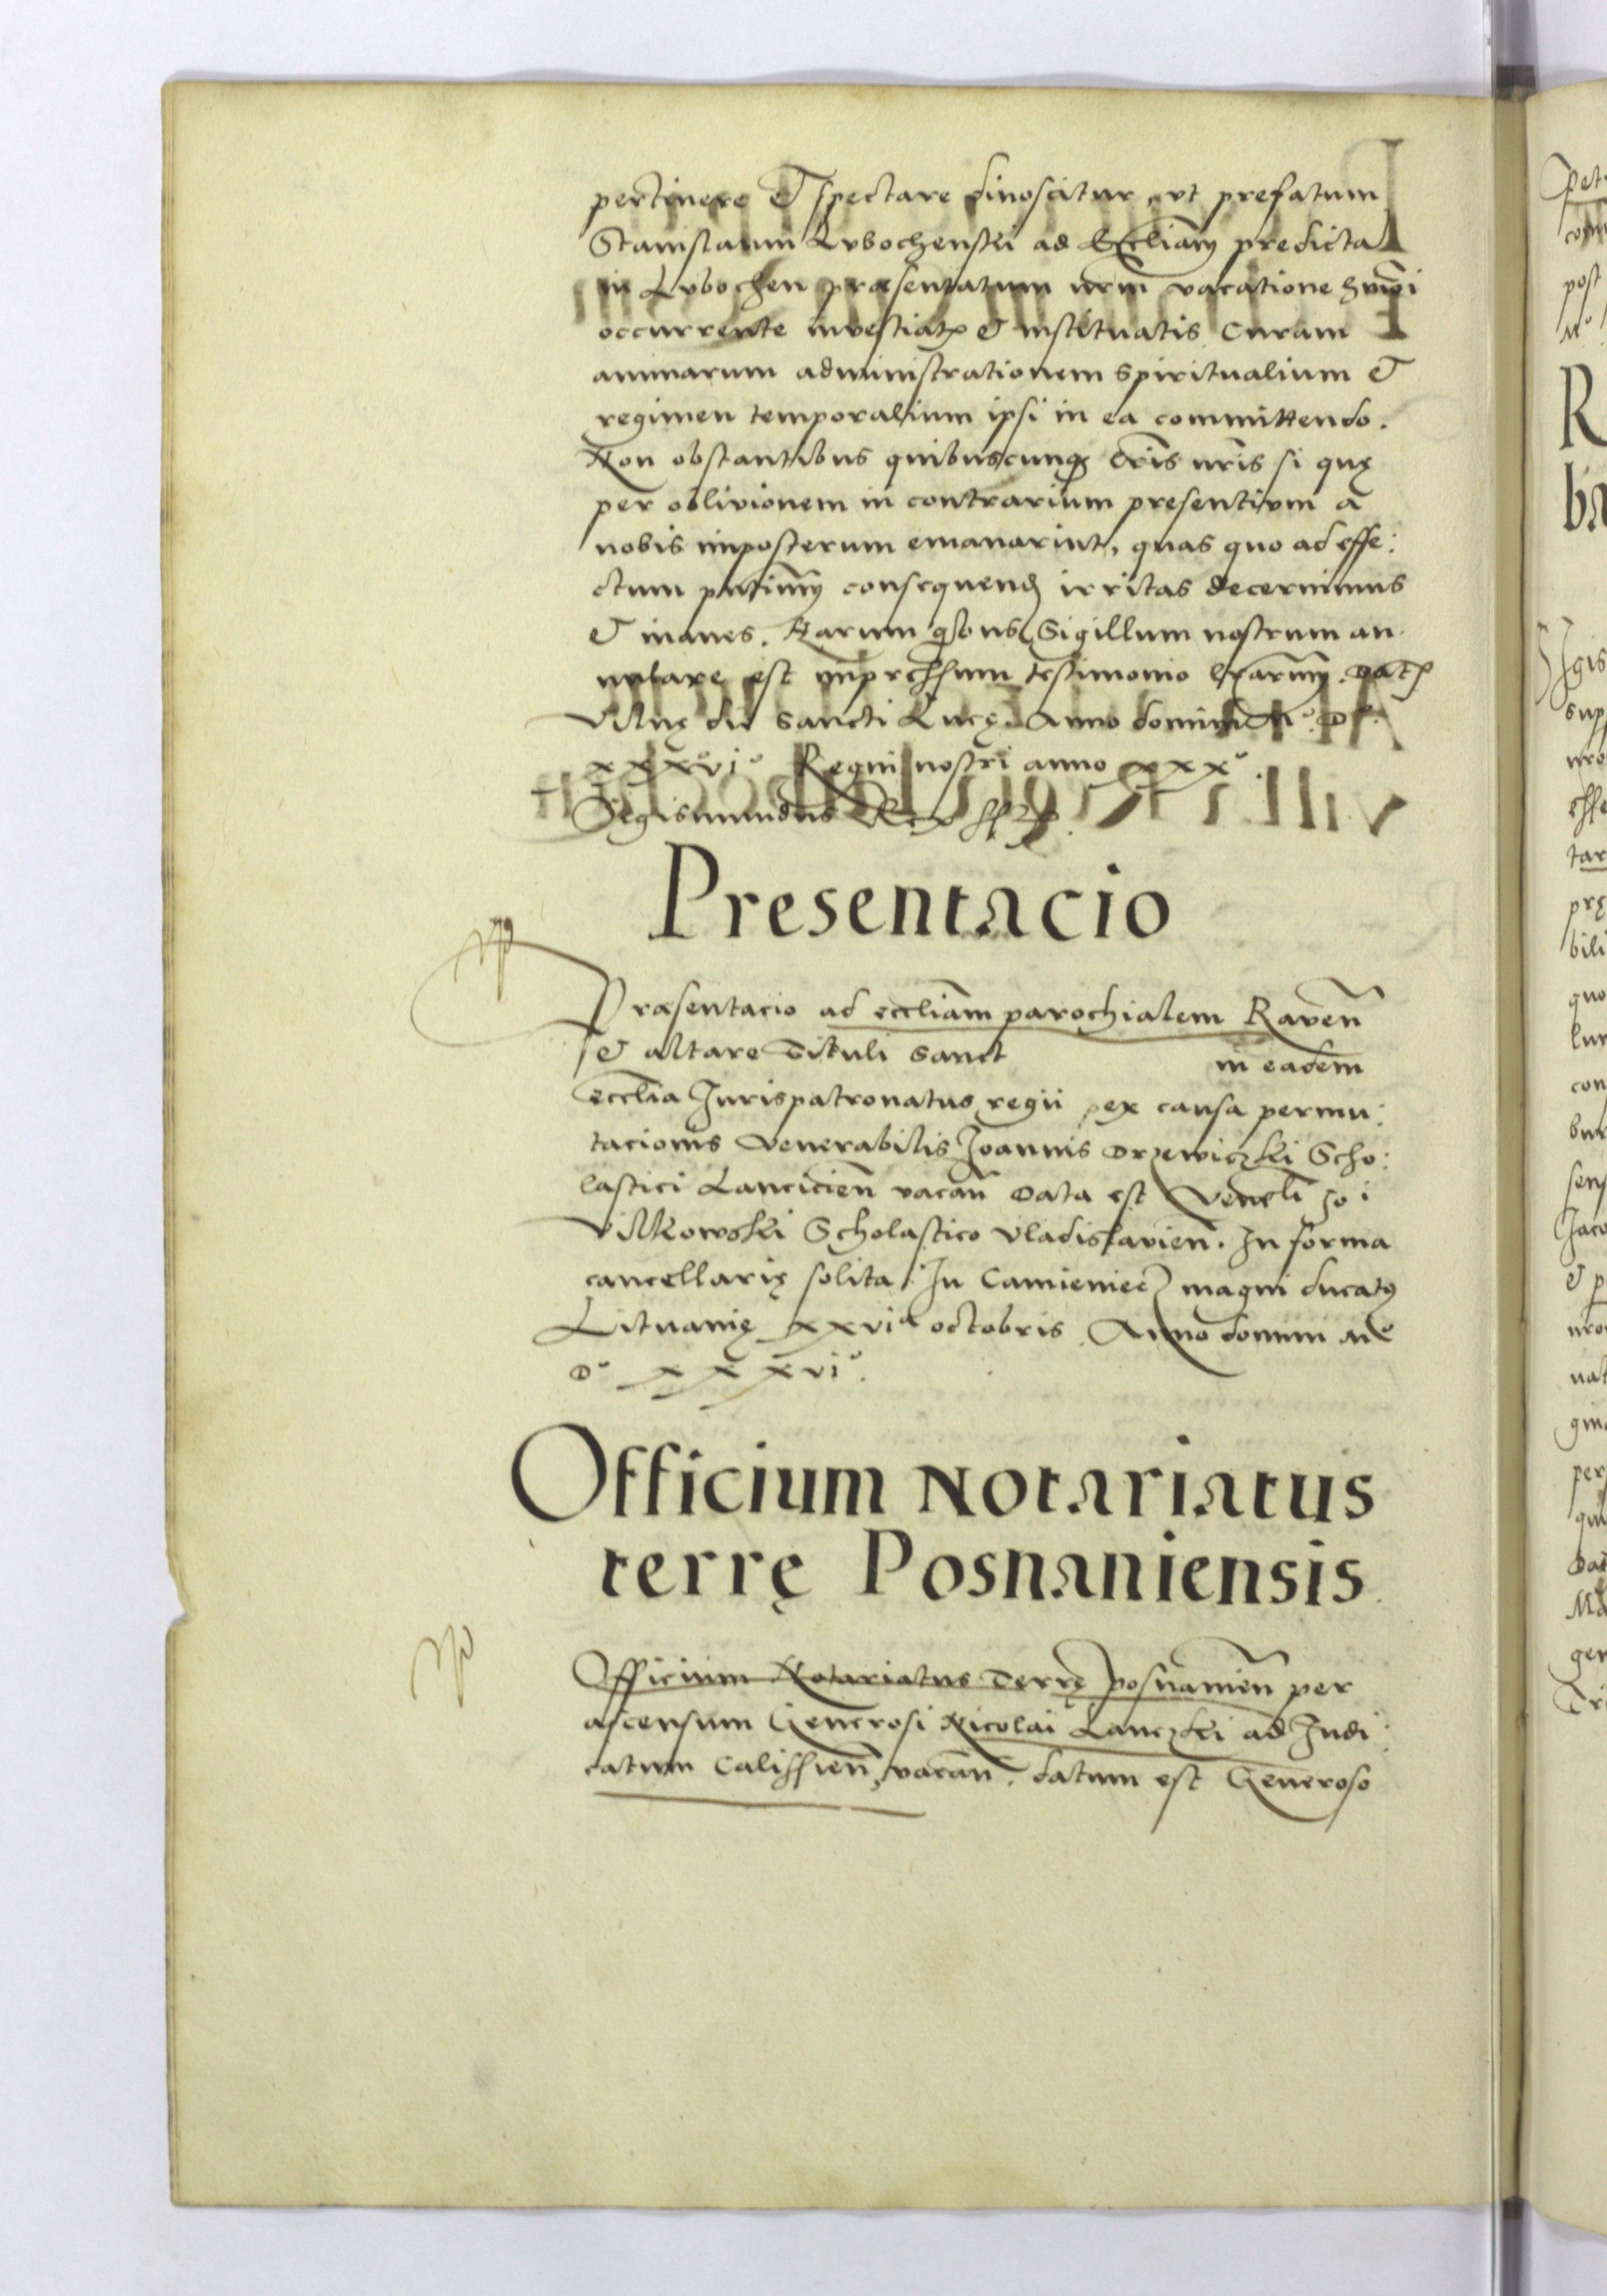 pertinere et spectare dinoscitur, ut prefatum
Stanislaum Lvbochenski ad Eccliam predictā
in Lvbochen præsentatum nrm vacatione hmoi
occurrente investiatꝭ et instituatis Curam
animarum administrationem spiritualium et
regimen temporalium ipsi in ea committendo.
Non obstantibus quibuscunqꝫ lris nris si quę
per oblivionem in contrarium presentivm a
nobis imposterum emanarint, quas quo ad effe:
ctum consequend irritas decernimus
et inanes. Harum qbus Sigillum nostrum an
nulare est impressum testimonio lrarum. Datꝭ
Vilnę die sancti Lucę. Anno domini M° D°
xxxvi° Regni nostri anno xxx°.
Sigismundus Rex sst
Presentacio
Præsentacio ad eccliam parochialem Raven̄
et altare Tituli sanct in eadem
ecclia Jurispatronatus regii ex causa permu:
tacionis Venerabilis Joannis Drzewiczki Scho:
lastici Lancicien̄ vacan̄ Data est Venebli Jo i
Vilkowski Scholastico Vladislavien̄. In forma
cancellarię solita. In Camieniecz magni ducatꝰ
Lituanię xxvia octobris Anno domini M°
D° xxxvi°.
Officium Notariatus
terrę Posnaniensis.
Officium Notariatus Terrę Posnanien̄ per
ascensum Generosi Nicolai Lanczki ad Judi:
catum Calissien̄ vacan̄. datum est Generoso